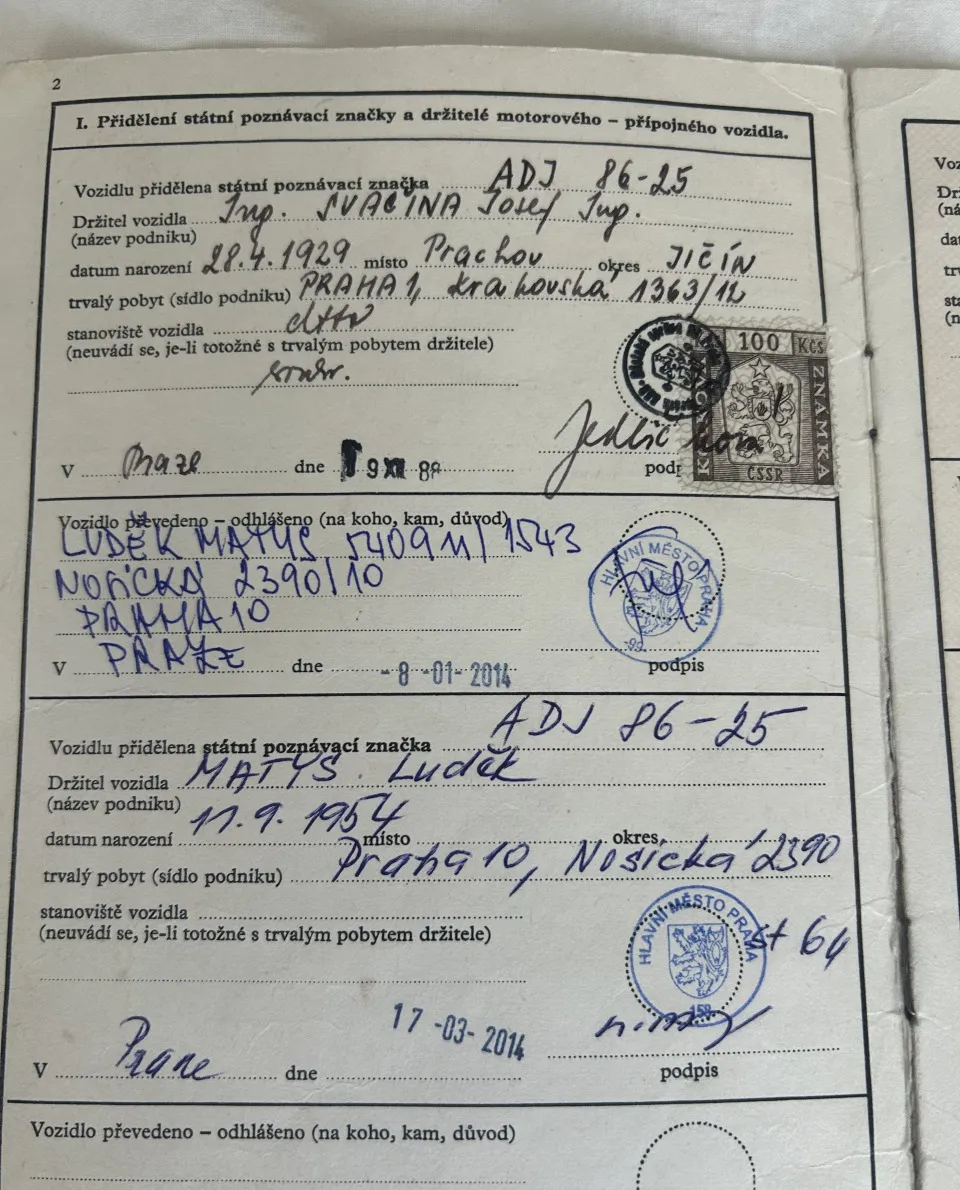 2
I. Přidělení státní poznávací značky a držitelé motorového – přípojného vozidla.
Vozidlu přidělena státní poznávací značka ADJ 86-25
Držitel vozidla Ing. SVAČINA Josef Ing.
(název podniku)
datum narození 28.4.1929 místo Prachov okres JIČÍN
trvalý pobyt (sídlo podniku) PRAHA 1, Krakovská 1363/12
stanoviště vozidla dtto
(neuvádí se, je-li totožné s trvalým pobytem držitele)
100 KČS
ZNÁMKA
ČSSR
V Praze dne 9 XII 88 podp
Vozidlo převedeno – odhlášeno (na koho, kam, důvod)
LUDĚK MATYS 540911/1543
NOŠICKÁ 2390/10
PRAHA 10
HLAVNÍ MĚSTO PRAHA
-99-
V PRAZE dne -8 -01- 2014 podpis
Vozidlu přidělena státní poznávací značka ADJ 86-25
Držitel vozidla MATYS Luděk
(název podniku)
datum narození 11.9.1954 místo okres
trvalý pobyt (sídlo podniku) Praha 10, Nošická 2390
stanoviště vozidla
(neuvádí se, je-li totožné s trvalým pobytem držitele)
HLAVNÍ MĚSTO PRAHA
158
17 -03- 2014
V Praze dne podpis
Vozidlo převedeno – odhlášeno (na koho, kam, důvod)